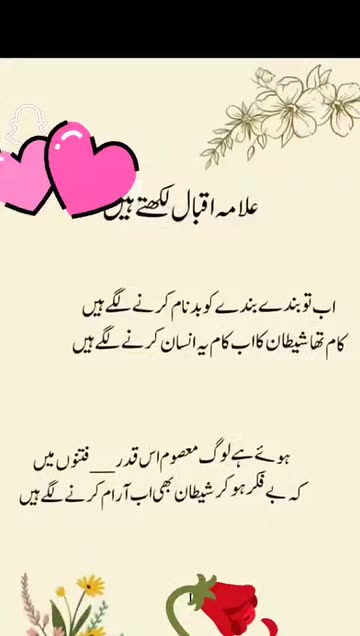 علامہ اقبال لکھتے ہیں
اب تو بندے بندے کو بدنام کرنے لگے ہیں
کام تھا شیطان کا اب کام یہ انسان کرنے لگے ہیں
ہوئے ہے لوگ معصوم اس قدر__فتنوں میں
کہ بے فکر ہو کر شیطان بھی اب آرام کرنے لگے ہیں